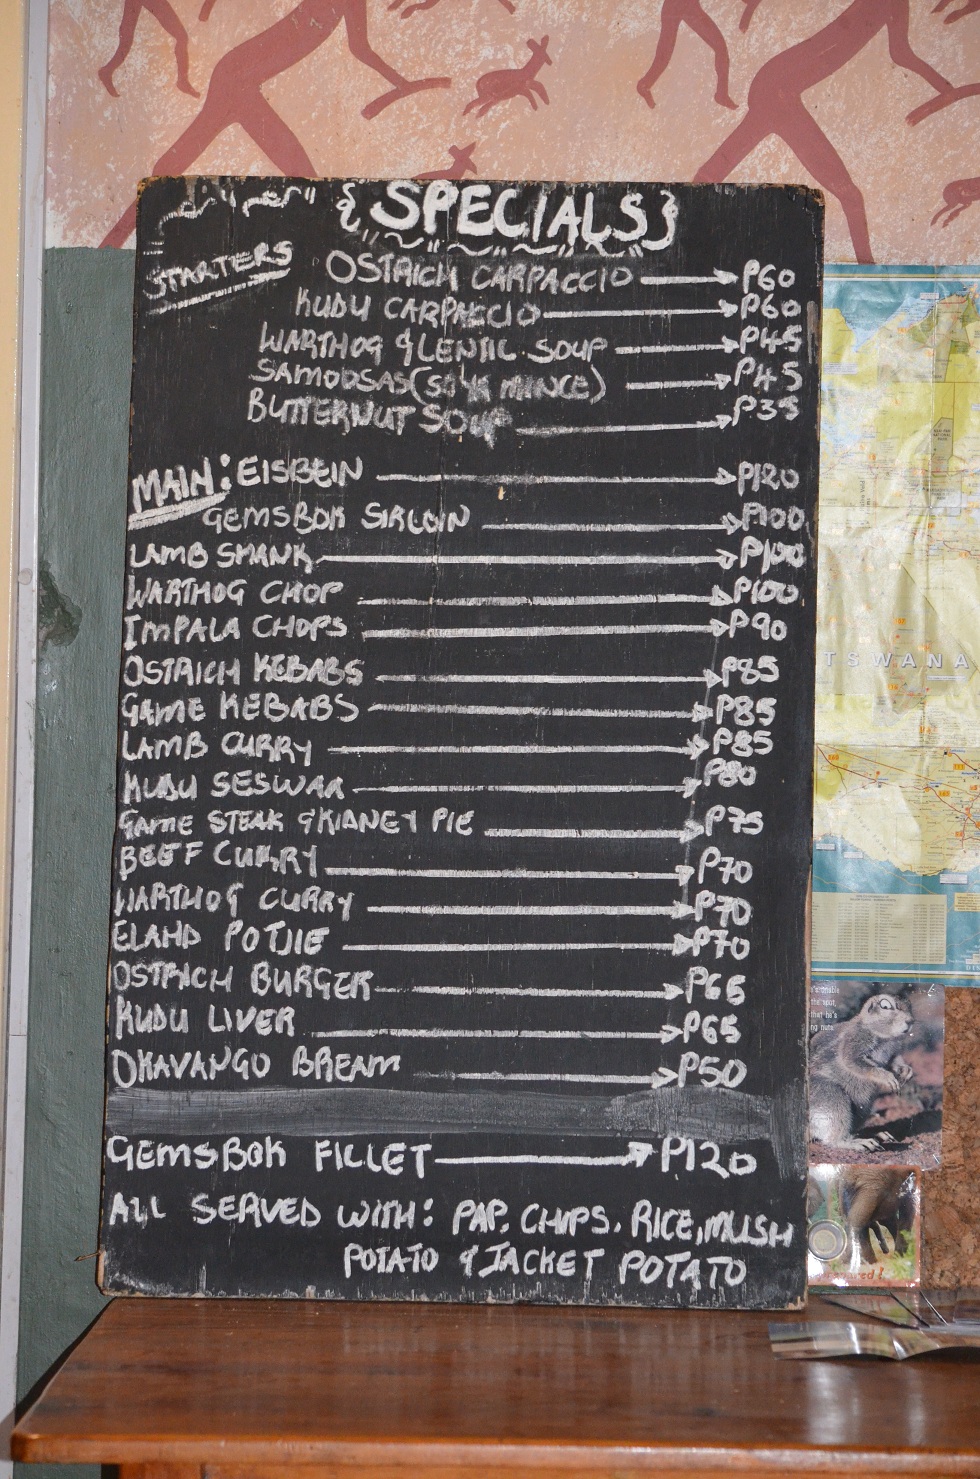 {SPECIALS}
STARTERS
OSTRICH CARPACCIO P60
KUDU CARPACCIO P60
WARTHOG & LENTIL SOUP P45
SAMOOSAS (SOYA MINCE) P45
BUTTERNUT SOUP P35
MAIN: EISBEIN P120
GEMSBOK SIRLOIN P100
LAMB SHANK P100
WARTHOG CHOP P100
IMPALA CHOPS P90
OSTRICH KEBABS P85
GAME KEBABS P85
LAMB CURRY P85
KUDU SESWAA P80
GAME STEAK & KIDNEY PIE P75
BEEF CURRY P70
WARTHOG CURRY P70
ELAND POTJIE P70
OSTRICH BURGER P65
KUDU LIVER P65
OKAVANGO BREAM P50
GEMSBOK FILLET P120
ALL SERVED WITH: PAP, CHIPS, RICE, MUSH
POTATO & JACKET POTATO
TSWANA
the spot,
that he's
ng nuts